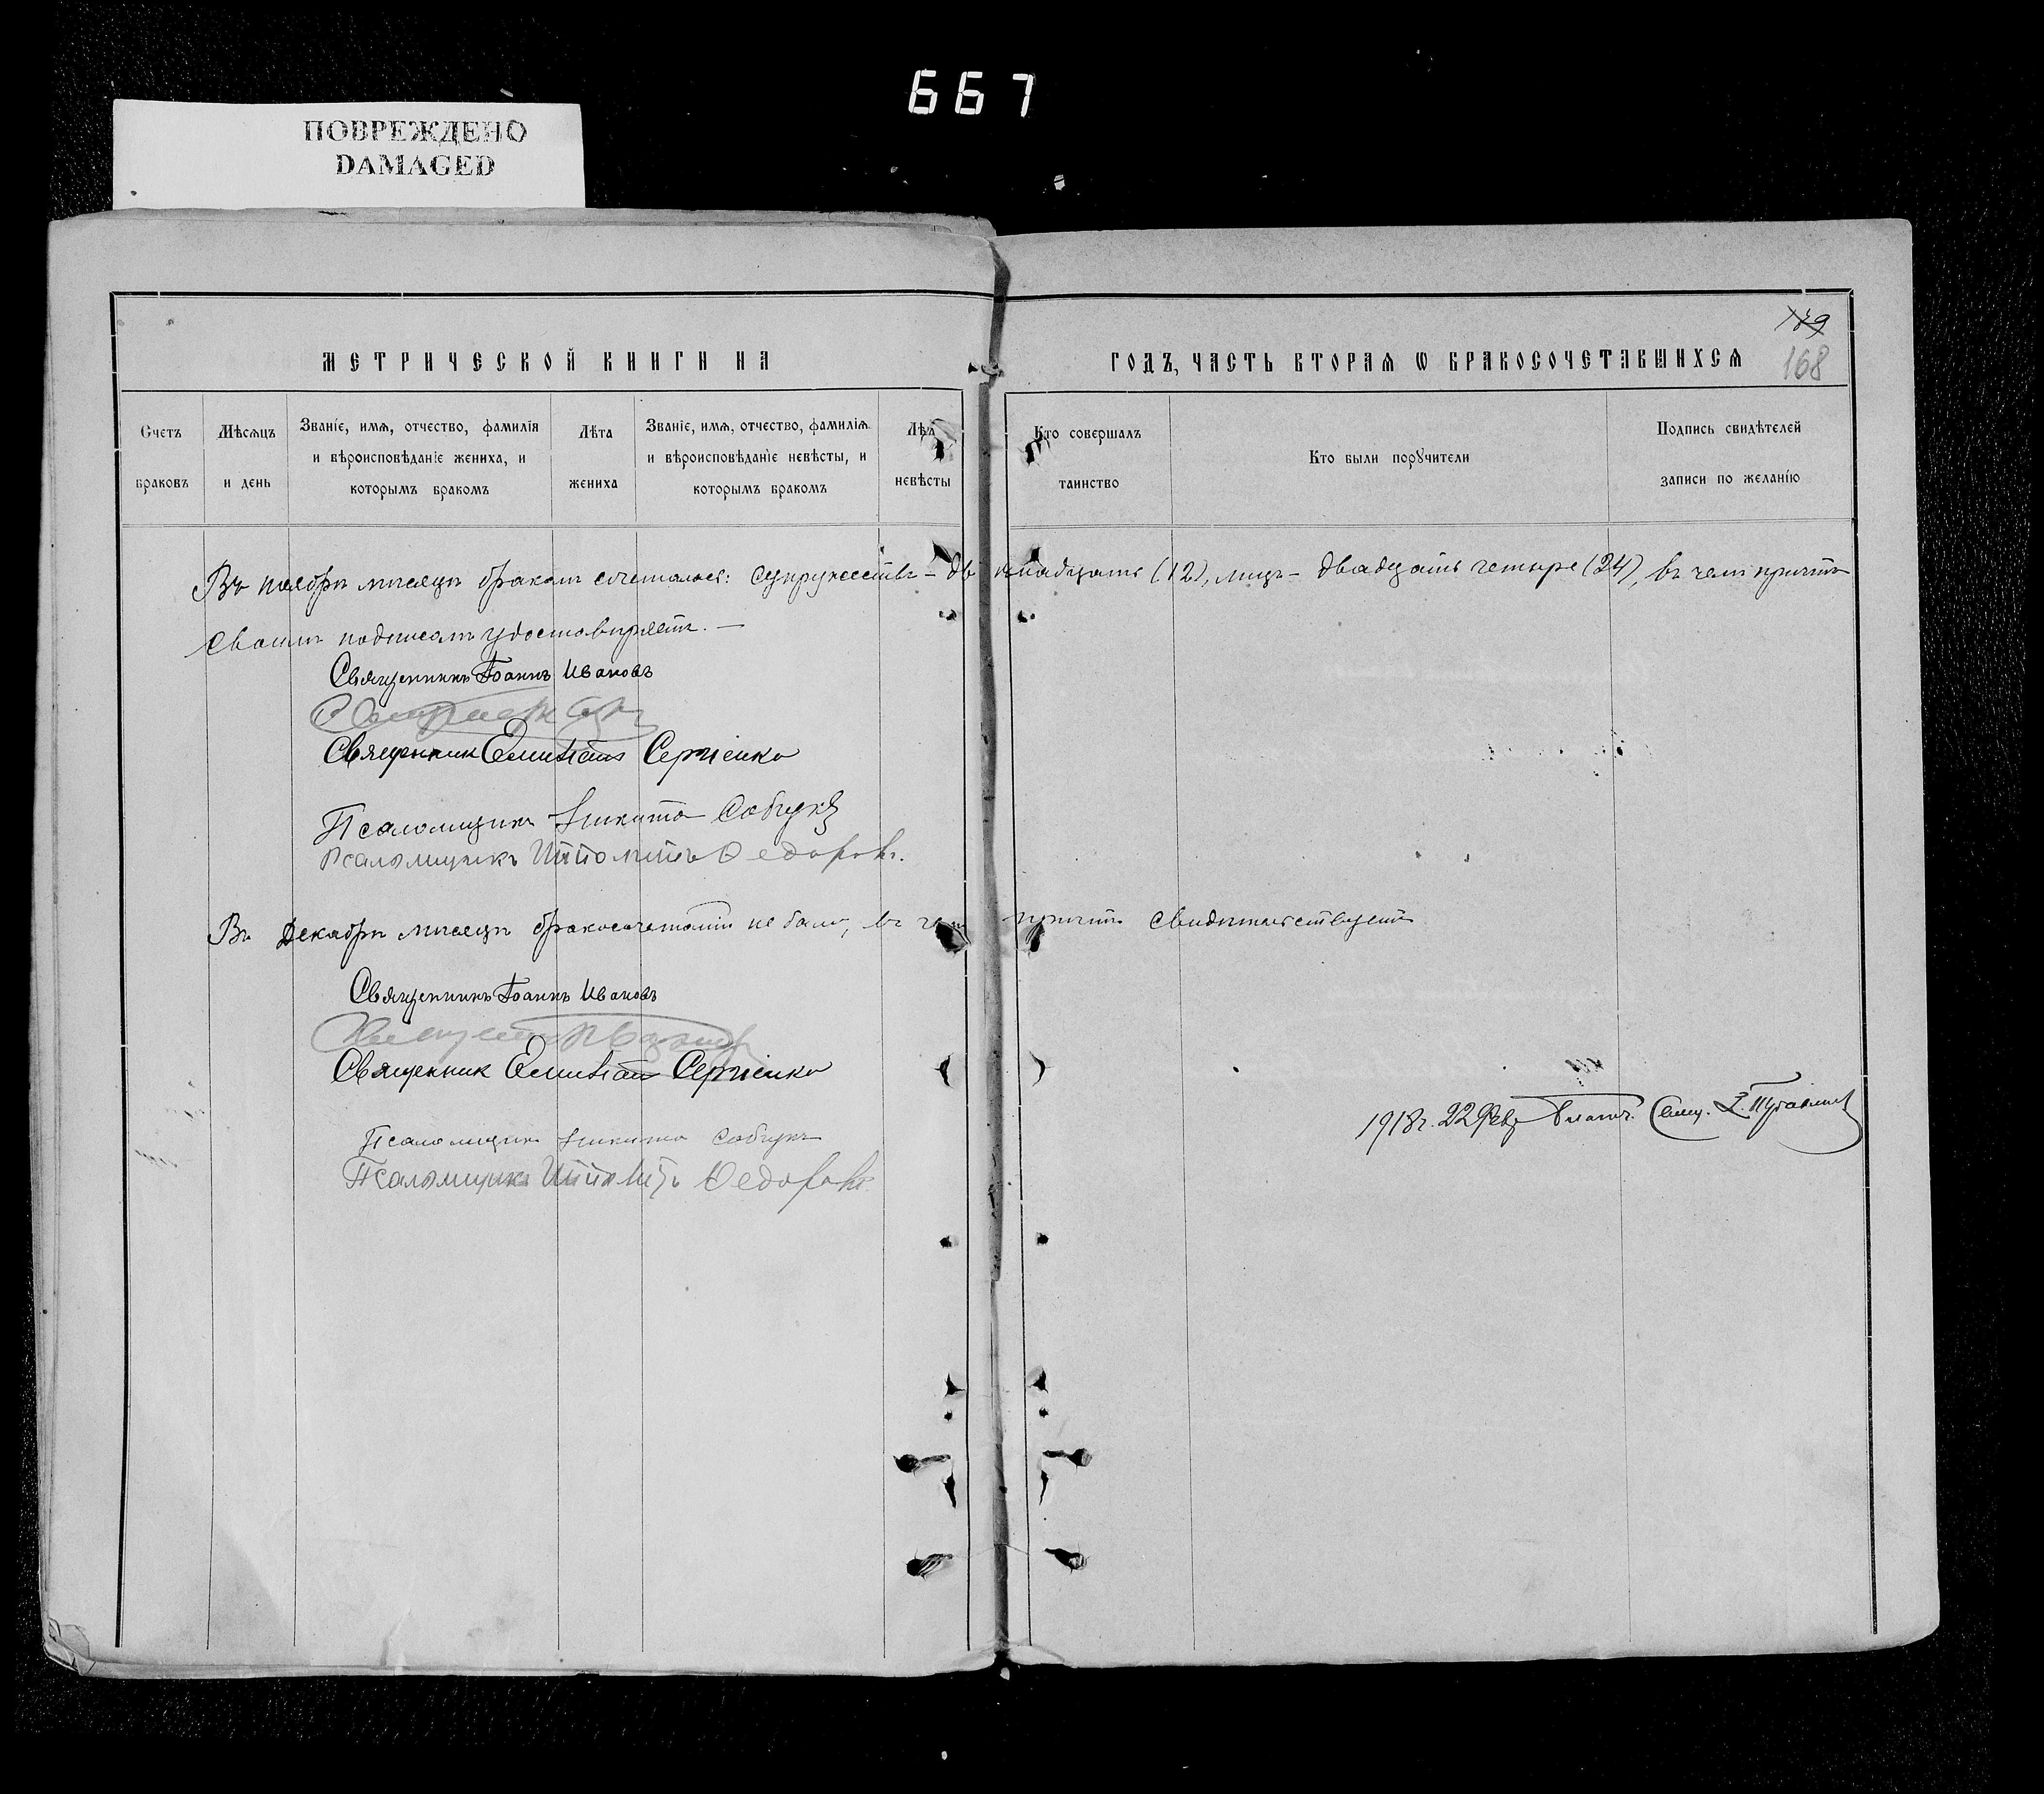 667
ПОВРЕЖДЕНО
DAMAGED
МЕТРИЧЕСКОЙ КНИГИ НА
ГОДЪ, ЧАСТЬ ВТОРАЯ Ѡ БРАКОСОЧЕТАВШИХСЯ
168
Счетъ браковъ
Мѣсяцъ и день
Званіе, имя, отчество, фамилія и вѣроисповѣданіе жениха, и которымъ бракомъ
Лѣта жениха
Званіе, имя, отчество, фамилія и вѣроисповѣданіе невѣсты, и которымъ бракомъ
Лѣта невѣсты
Кто совершалъ таинство
Кто были порꙋчители
Подпись свидѣтелей записи по желанію
Въ ноябрѣ мѣсяцѣ бракомъ сочеталось: супружествъ – двѣнадцать (12), лицъ – двадцать четыре (24), въ чемъ причтъ
своимъ подписомъ удостовѣряетъ. –
Священникъ Іоаннъ Ивановъ
Священник Емиліанъ Сергіенко
Псаломщикъ Никита Собчукъ
Псаломщикъ Ипполитъ Ѳедоровъ.
Въ Декабрѣ мѣсяцѣ бракосочетаній не было, въ чемъ причтъ свидѣтельствуетъ
Священникъ Іоаннъ Ивановъ
Священник Емиліанъ Сергіенко
Псаломщикъ Никита Собчукъ
Псаломщикъ Ипполитъ Ѳедоровъ.
1918 г. 22 Февр. Благоч. Свящ.